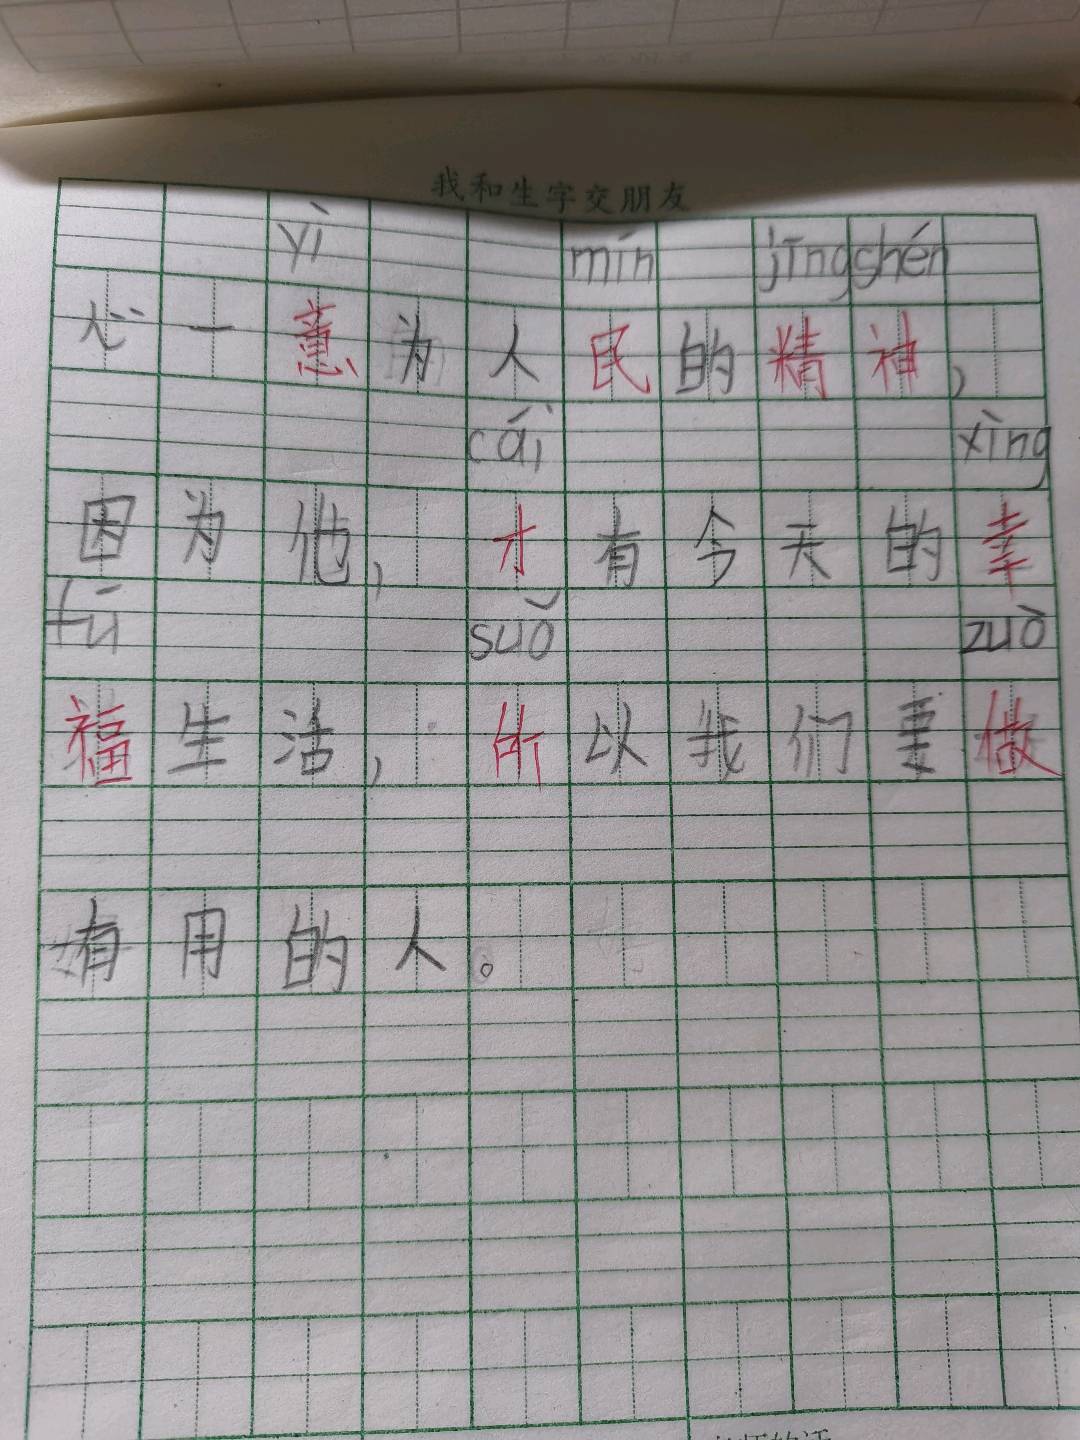 我和生字交朋友
yì mín jīng shén
心一意为人民的精神，
cái xìng
因为他，才有今天的幸
fú suǒ zuò
福生活，所以我们要做
有用的人。